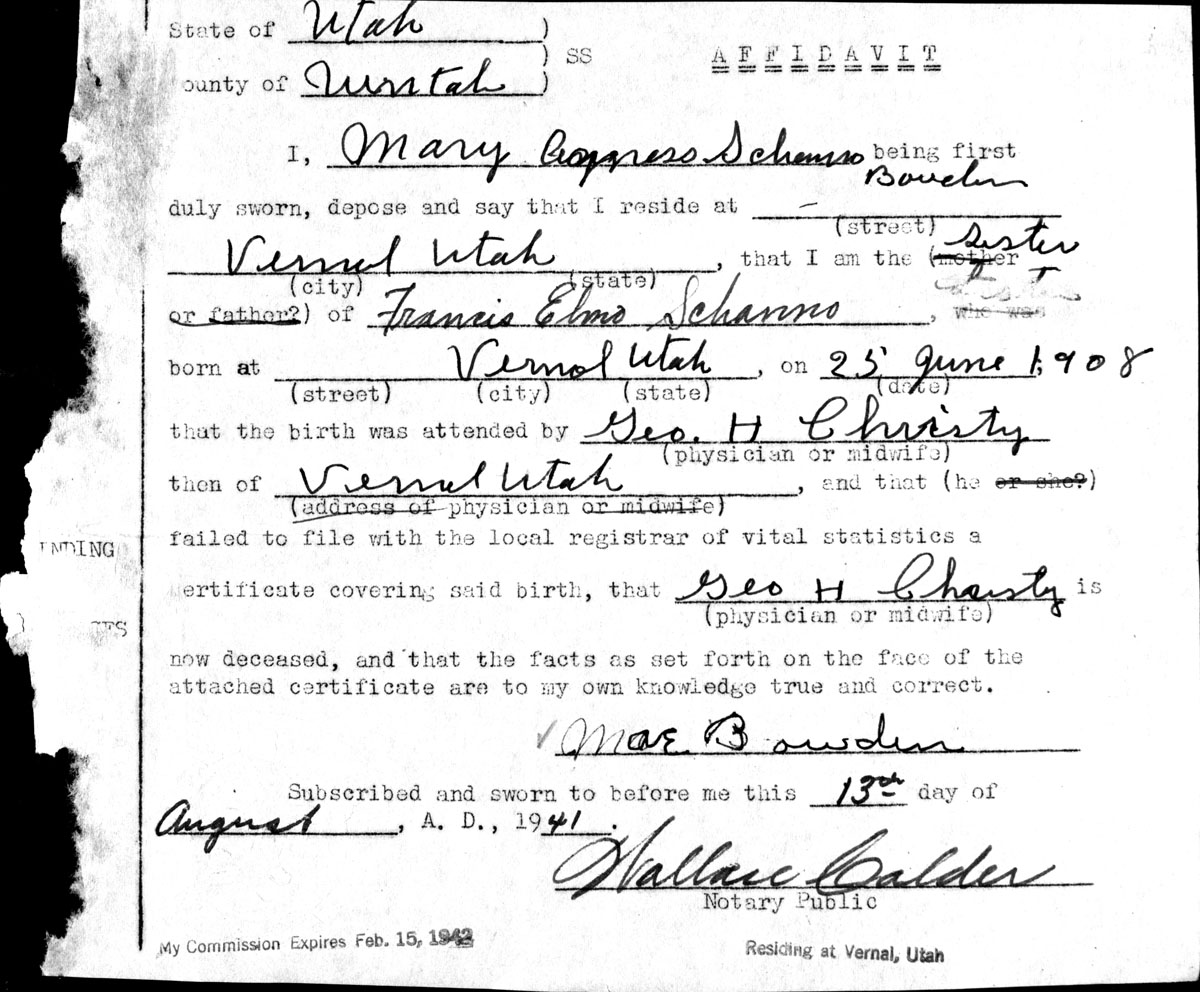 State of Utah )
) SS AFFIDAVIT
ounty of Uintah )
I, Mary Schanno being first
Bowden
duly sworn, depose and say that I reside at –
(street)
Sister
Vernal Utah, that I am the (mother
(city) (state)
or father?) of Francis Elmo Schanno, who was
born at Vernal Utah, on 25 June 1908
(street) (city) (state) (date)
that the birth was attended by Geo. H Christy
(physician or midwife)
then of Vernal Utah, and that (he or she?)
(address of physician or midwife)
failed to file with the local registrar of vital statistics a
INDING
ertificate covering said birth, that Geo H Christy is
(physician or midwife)
now deceased, and that the facts as set forth on the face of the
attached certificate are to my own knowledge true and correct.
Mae Bowden
Subscribed and sworn to before me this 13th day of
August, A. D., 1941.
Wallace Calder
Notary Public
My Commission Expires Feb. 15, 1942
Residing at Vernal, Utah